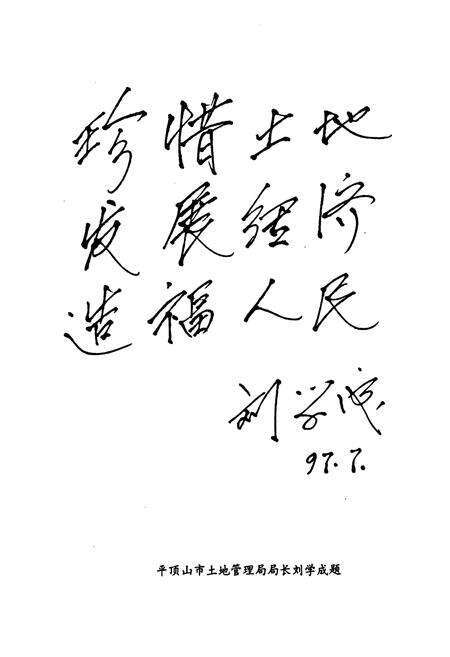 珍惜土地
发展经济
造福人民
刘学成
97.7.
平顶山市土地管理局局长刘学成题